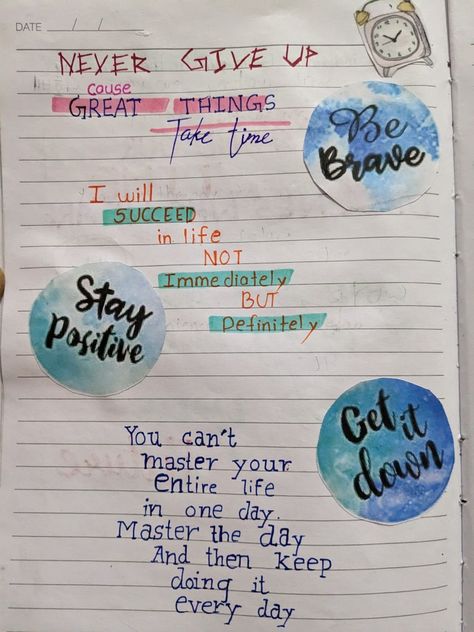 DATE
NEVER GIVE UP
cause
GREAT THINGS
Take time
Be
Brave
I will
SUCCEED
in life
NOT
Immediately
BUT
Definitely
Stay
Positive
Get it
down
You can't
master your
entire life
in one day.
Master the day
And then keep
doing it
every day